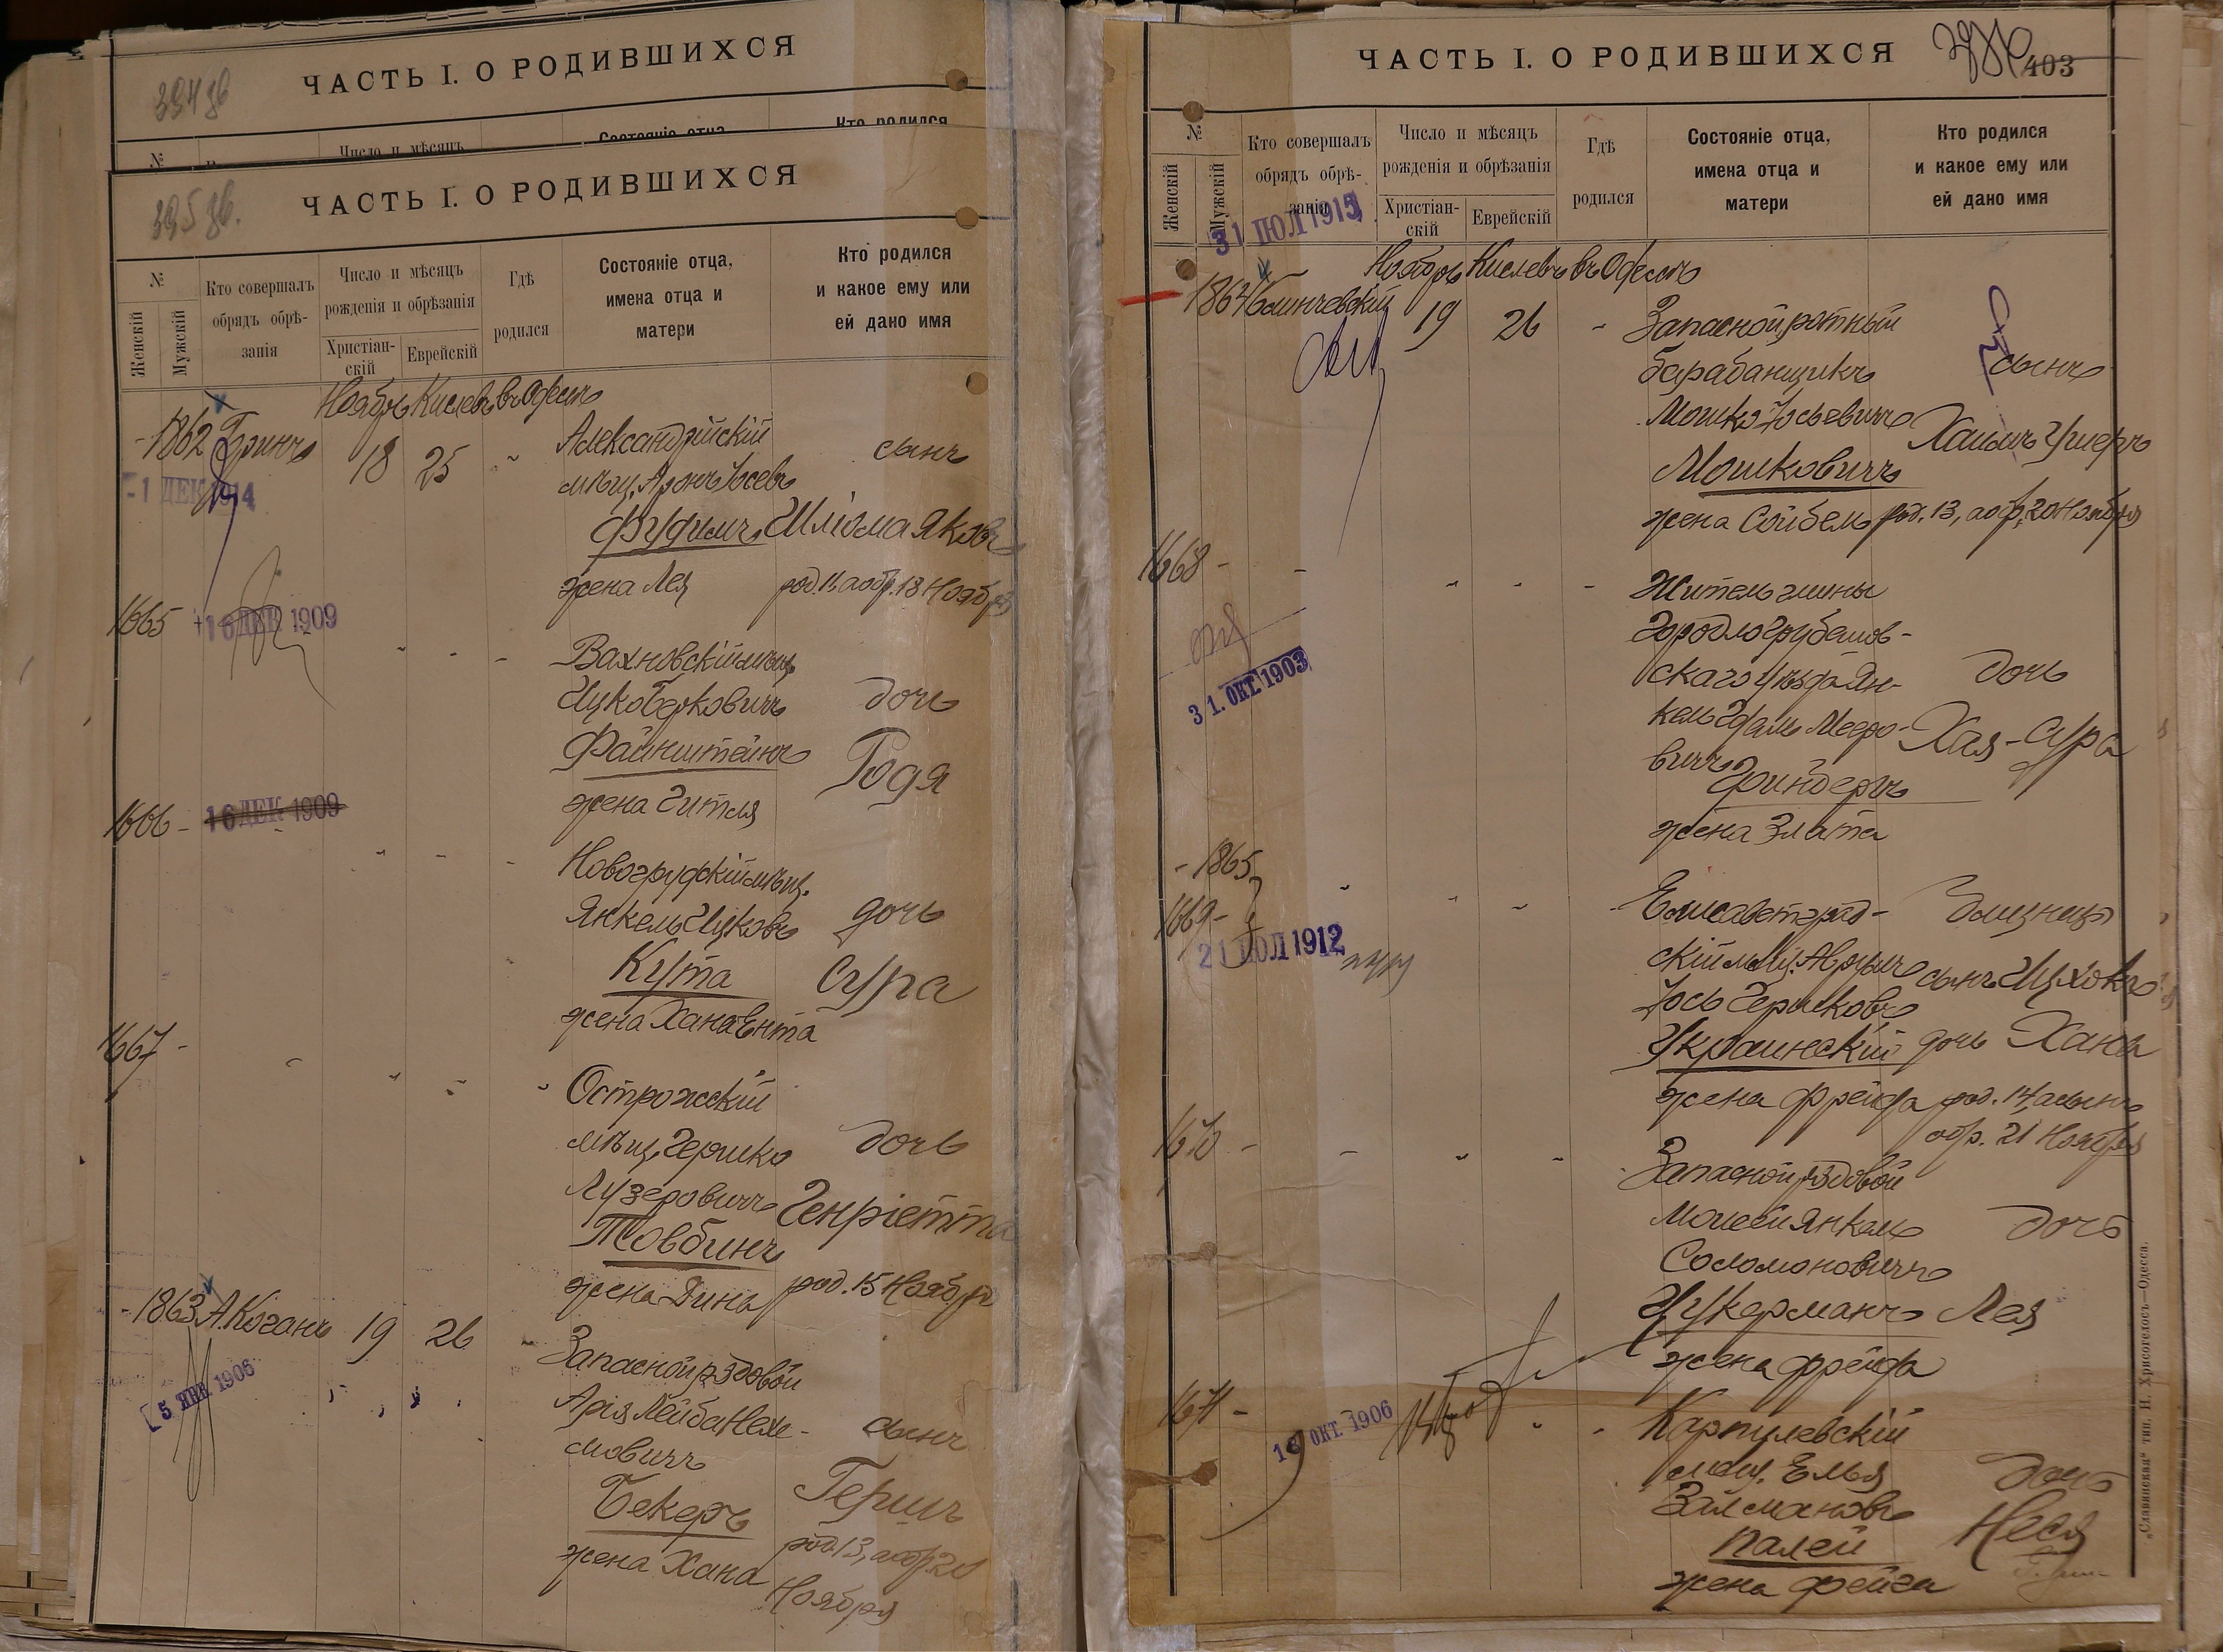 394 зв
ЧАСТЬ I. О РОДИВШИХСЯ
№
Число и мѣсяцъ
Состояніе отца
Кто родился
395 зв.
ЧАСТЬ I. О РОДИВШИХСЯ
№
Женскій
Мужскій
Кто совершалъ
обрядъ обрѣ-
занія
Число и мѣсяцъ
рожденія и обрѣзанія
Христіан-
скій
Еврейскій
Гдѣ
родился
Состояніе отца,
имена отца и
матери
Кто родился
и какое ему или
ей дано имя
Ноябрь Кислевъ въ Одессѣ
1862 Бринъ 18 25 Александрійскій
мѣщ. Аронъ Іосевъ
Фудимъ
жена Лея
сынъ
Шліома Яковъ
род. 11, а обр. 18 Ноября
-1 ДЕК 1914
1665
16 ДЕК 1909
Вахновскій мѣщ.
Ицко Берковичъ
Файнштейнъ
жена Гитля
дочь
Годя
1666 -
16 ДЕК 1909
Новогрудскій мѣщ.
Янкель Ицковъ
Кута
жена Хана Ента
дочь
Сура
1667 -
Острожскій
мѣщ. Гершко
Лузеровичъ
Товбинъ
жена Дина
дочь
Генріетта
род. 15 Ноября
- 1863 А. Коганъ 19 26
5 ЯНВ 1906
Запасной рядовой
Арія Лейба Нехе-
мовичъ
Бекеръ
жена Хана
сынъ
Гершъ
род. 13, а обр. 20
Ноября
ЧАСТЬ I. О РОДИВШИХСЯ
403
№
Женскій
Мужскій
Кто совершалъ
обрядъ обрѣ-
занія
Число и мѣсяцъ
рожденія и обрѣзанія
Христіан-
скій
Еврейскій
Гдѣ
родился
Состояніе отца,
имена отца и
матери
Кто родился
и какое ему или
ей дано имя
31 ІЮЛ 1915
Ноябрь Кислевъ въ Одессѣ
1864 19 26
Запасной ротный
барабанщикъ
Мошко Іосьевичъ
Мошковичъ
жена Сойбель
сынъ
Хаимъ Ушеръ
род. 13, а обр. 20 Ноября
1668 -
31. ОКТ. 1903
Житель гмины
Городло Грубешов-
скаго уѣзда Ян-
кель Эдаль Мееро-
вичъ
Гриндеръ
жена Злата
дочь
Хая-Сура
- 1865
1669 -
21 ІЮЛ 1912
Елисаветград-
скій мѣщ. Аврумъ
Іось Гершковъ
Украинскій
жена Фрейда
Близнецы
сынъ Ицхокъ
дочь Хана
род. 14, а сынъ
обр. 21 Ноября
1670 -
Запасной рядовой
Моисей Янкель
Соломоновичъ
Цукерманъ
жена Фрейда
дочь
Лея
1671 -
16 ОКТ. 1906
Карпилевскій
мѣщ. Елья
Залмановъ
Палей
жена Фейга
дочь
Неся
„Славянская“ тип. Н. Хрисогелосъ—Одесса.